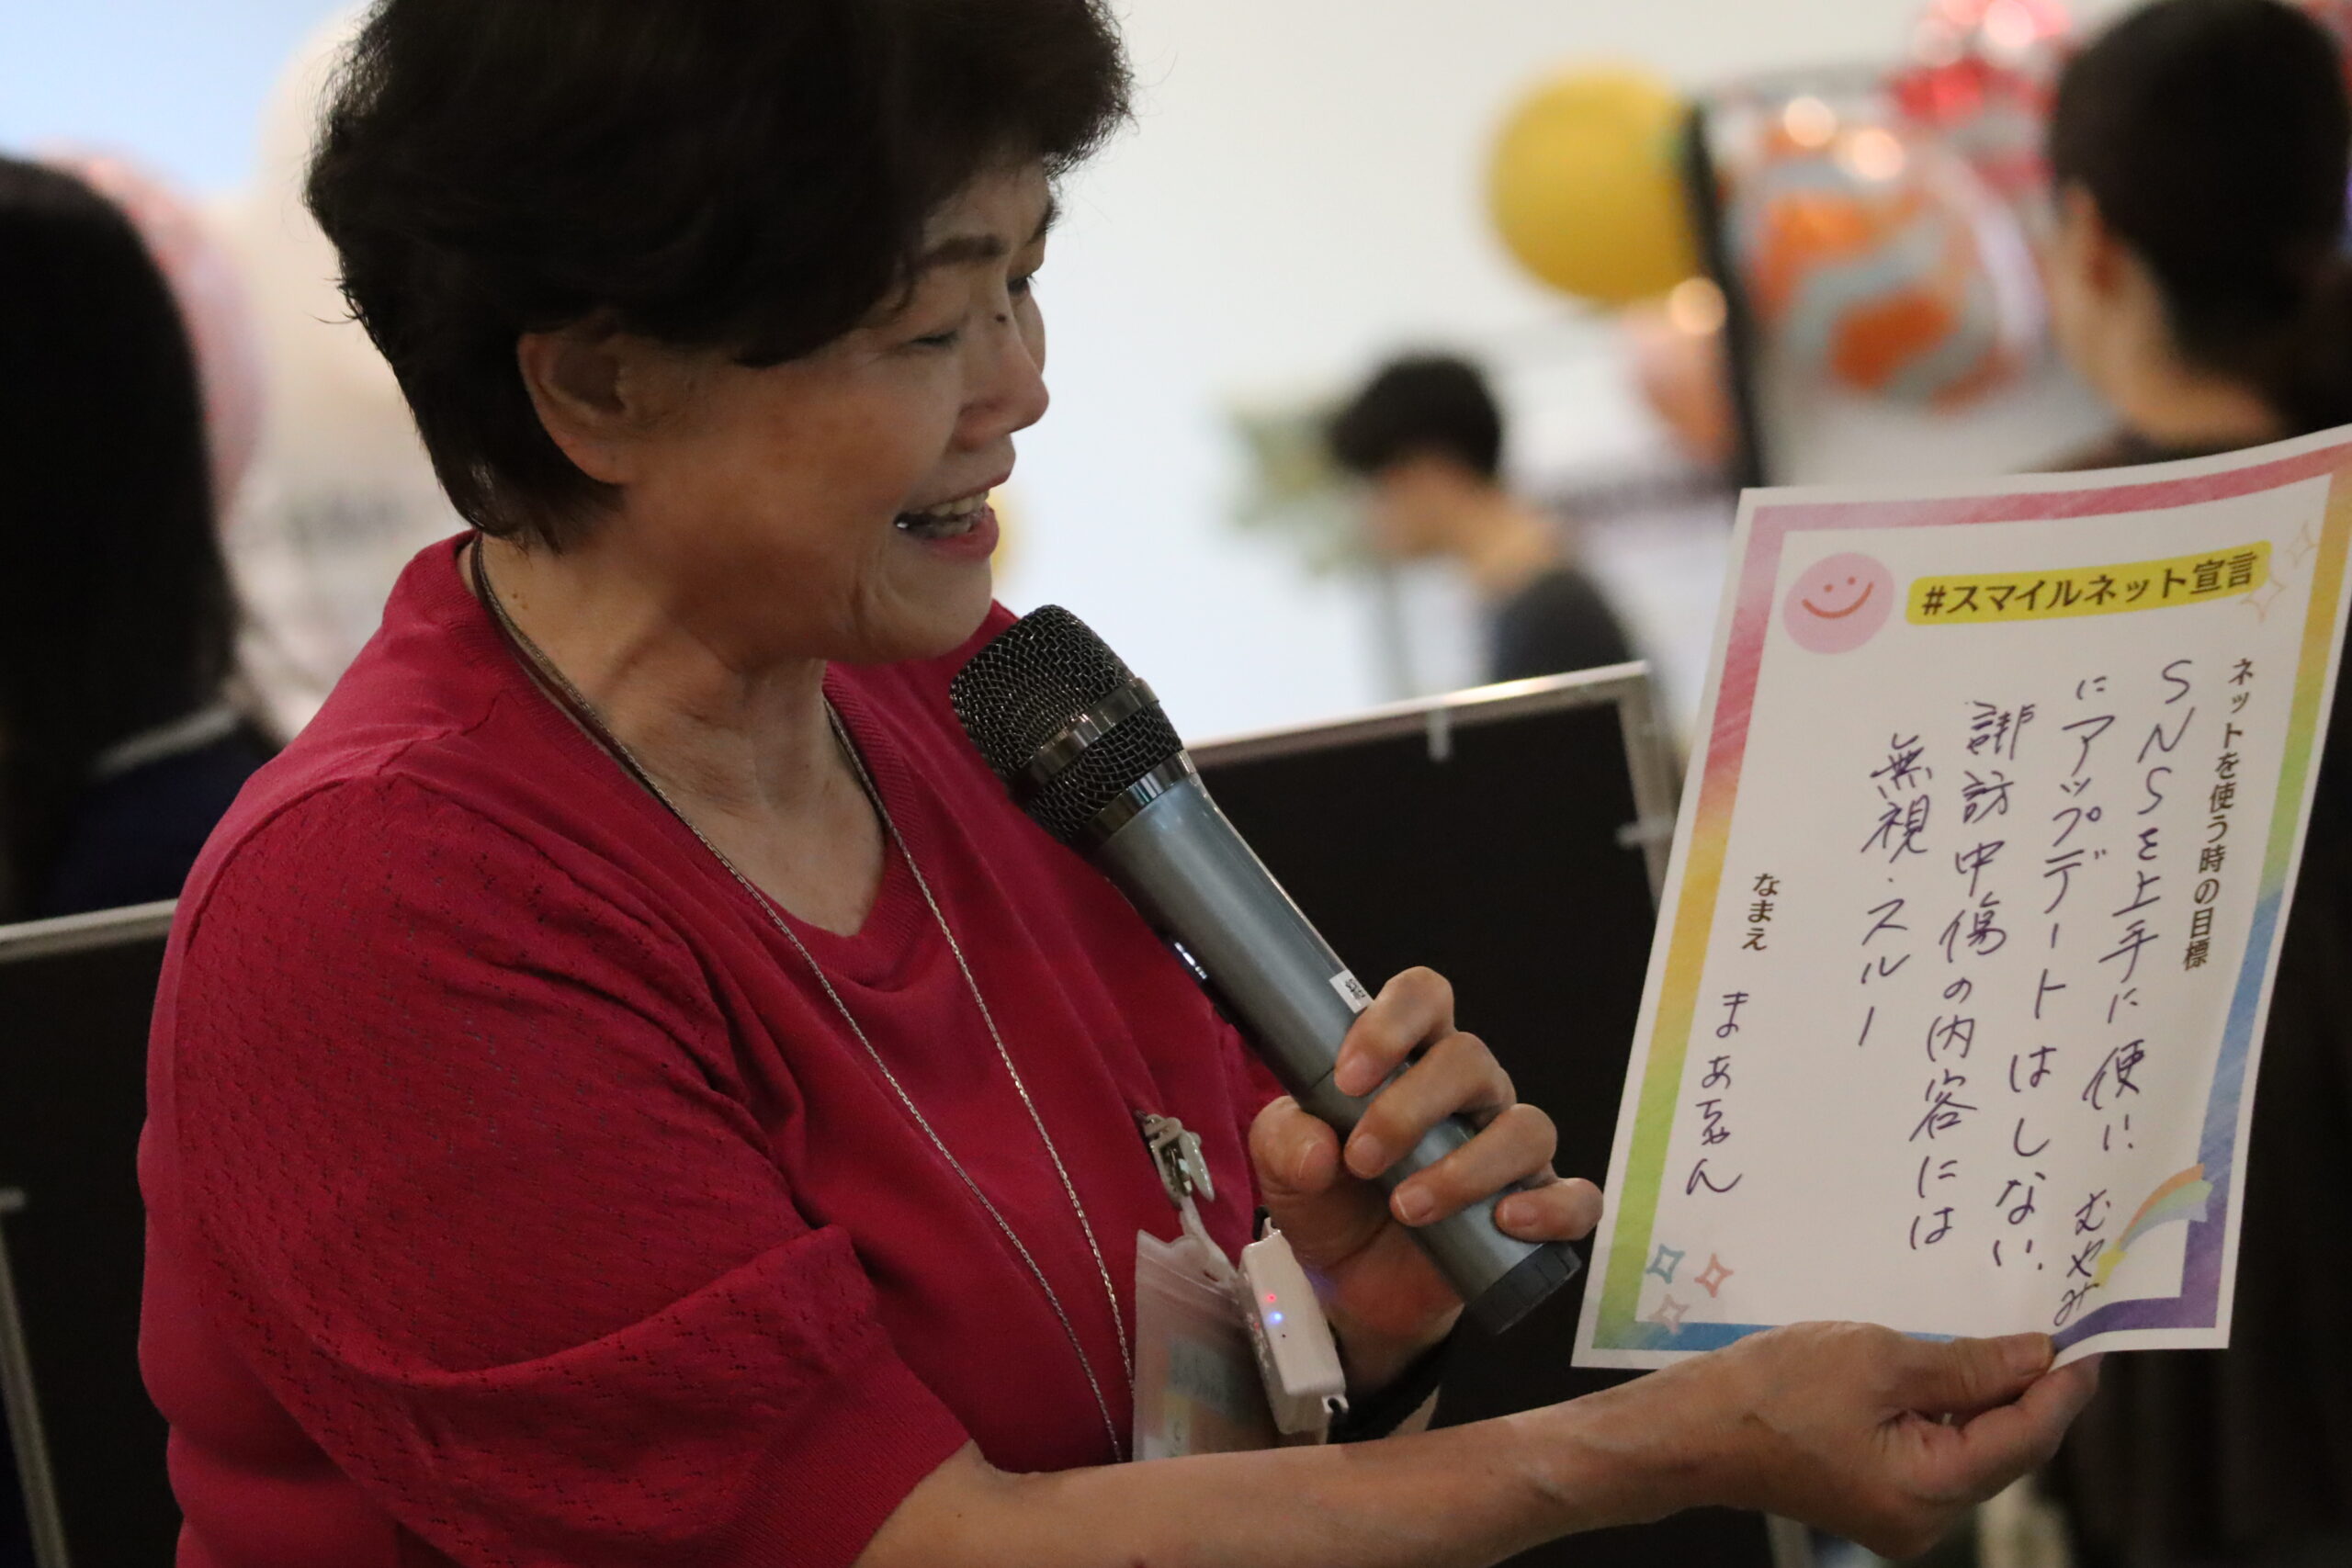 #スマイルネット宣言
ネットを使う時の目標
SNSを上手に使い むやみ
にアップデートはしない.
誹訪中傷の内容には
無視・スルー
なまえ まぁちゃん